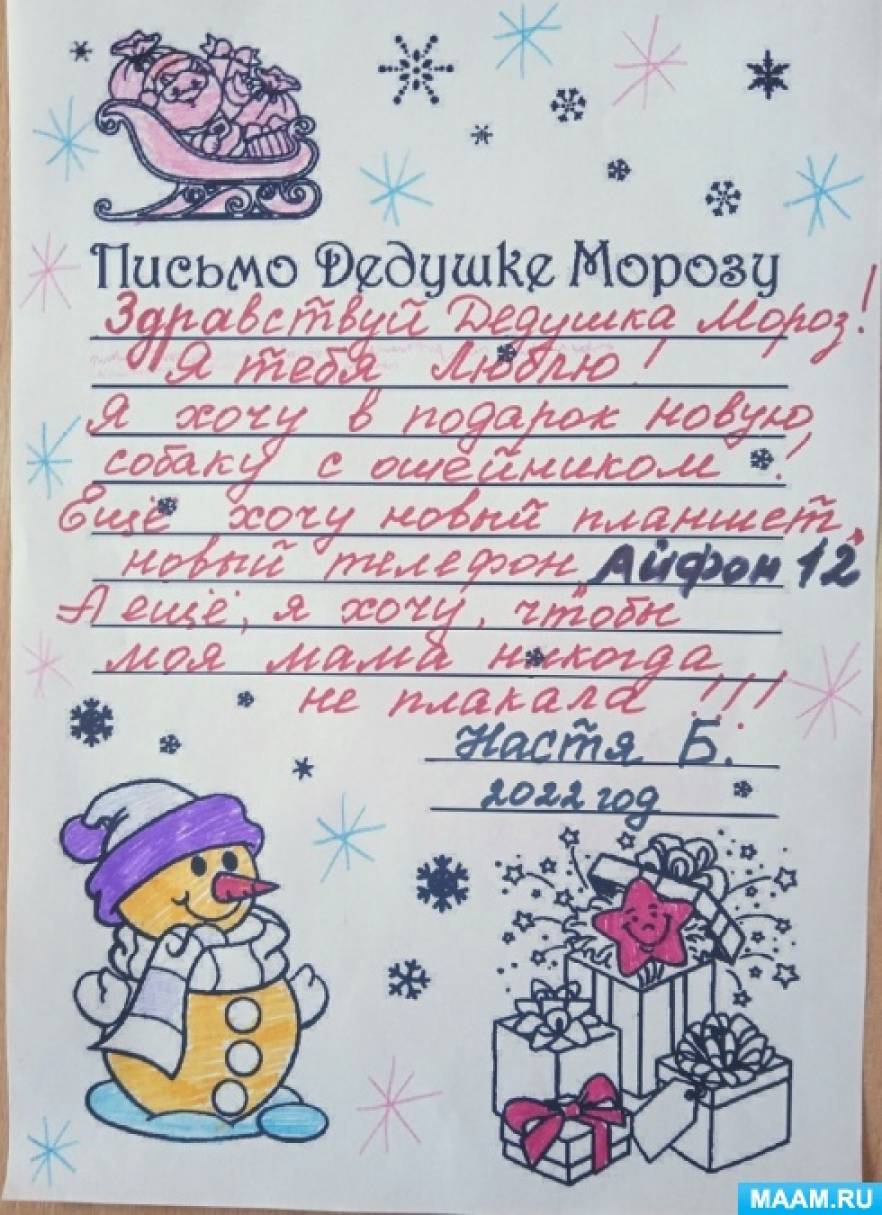 Письмо Дедушке Морозу
Здравствуй Дедушка Мороз!
Я тебя Люблю!
Я хочу в подарок новую
собаку с ошейником!
Ещё хочу новый планшет,
новый телефон Айфон 12
А ещё, я хочу, чтобы
моя мама никогда
не плакала!!!
Настя Б.
2022 год
MAAM.RU